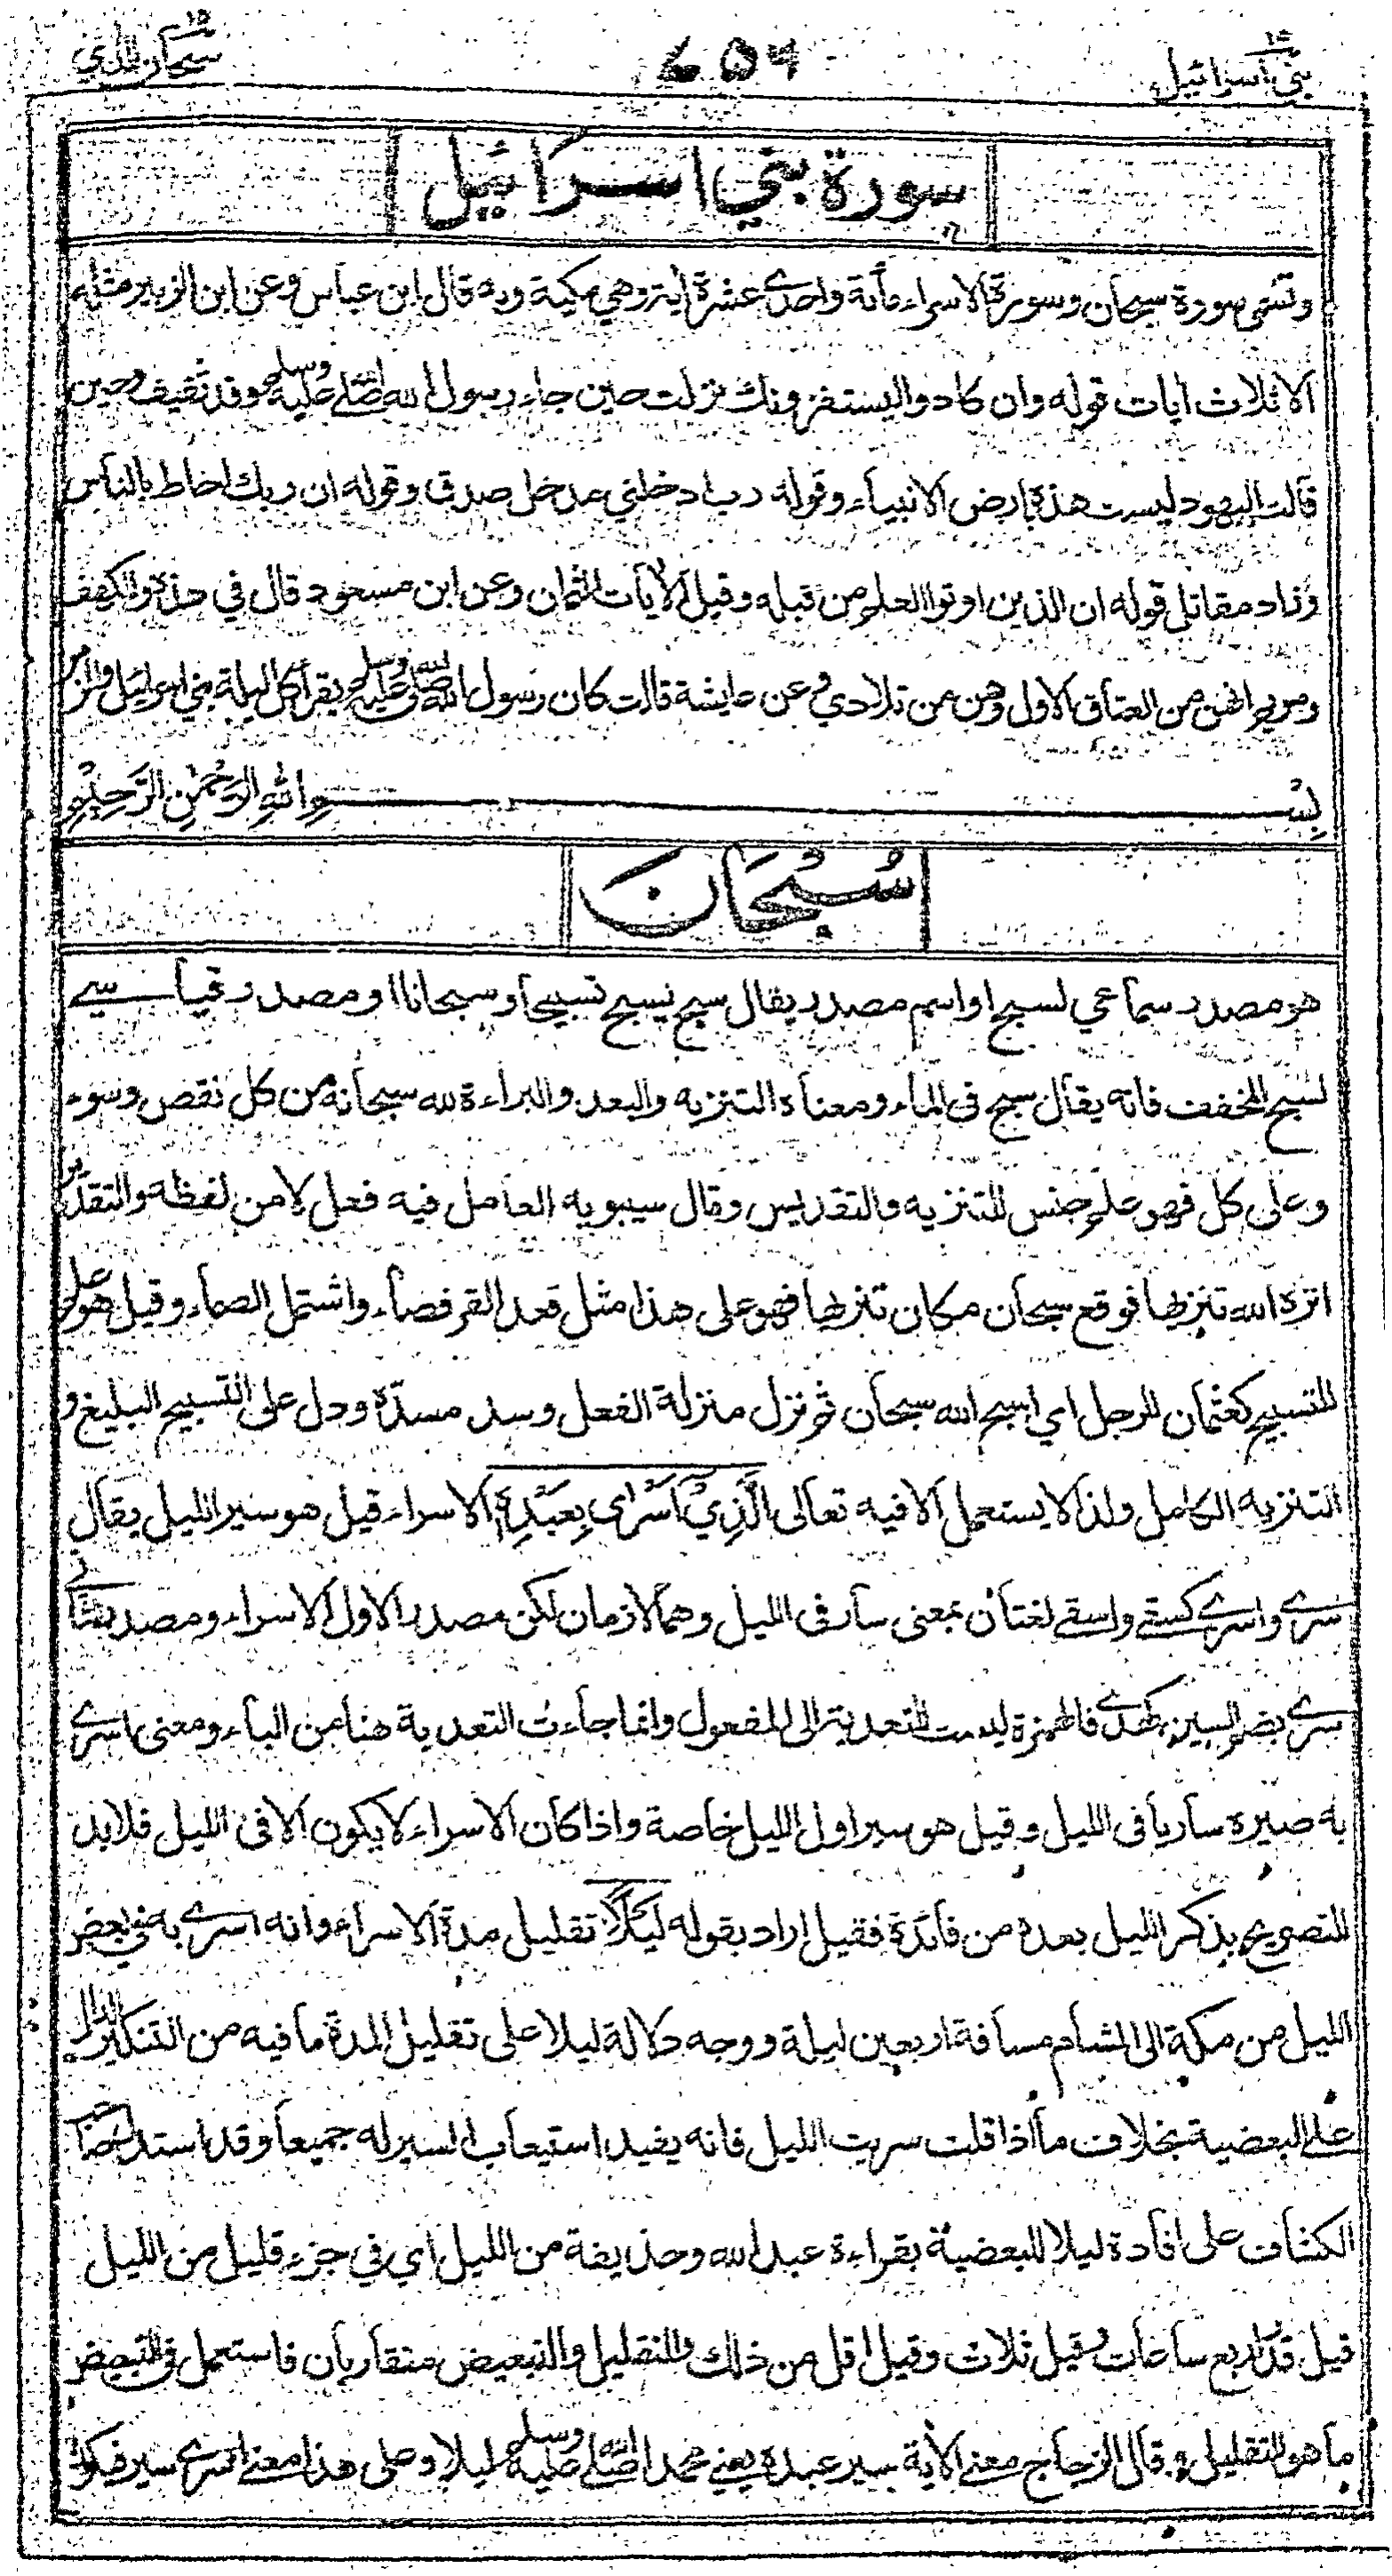 بني اسرائيل ١٥
٧٥٦
سبحان الذي ١٥
سورة بني اسرائيل
وتسمى سورة سبحان وسورة الاسراء مأية واحدى عشرة اية وهي مكية وبه قال ابن عباس وعن ابن الزبير مثله
الا ثلاث ايات قوله وان كادوا ليستفزونك نزلت حين جاء رسول الله صلى الله عليه وسلم وفد ثقيف وحين
قالت اليهود ليست هذه بارض الانبياء وقوله رب ادخلني مدخل صدق وقوله ان ربك احاط بالناس
وزاد مقاتل قوله ان الذين اوتوا العلم من قبله وقيل الايات الثمان وعن ابن مسعود قال في هذه والكهف
ومريم انهن من العتاق الاول وهن من تلادي وعن عايشة قالت كان رسول الله صلى الله عليه وسلم يقرأ كل ليلة بني اسرائيل والزمر
بسم الله الرحمن الرحيم
سُبْحَانَ
هو مصدر سماعي لسبح او اسم مصدر يقال سبح يسبح تسبيحا وسبحانا او مصدر قياسي
لسبح المخفف فانه يقال سبح في الماء ومعناه التنزيه والبعد والبراءة لله سبحانه من كل نقص وسوء
وعلى كل فهو علم جنس للتنزيه والتقديس وقال سيبويه العامل فيه فعل لا من لفظه والتقدير
انزه الله تنزيها فوقع سبحان مكان تنزيها فهو على هذا مثل قعد القرفصاء واشتمل الصماء وقيل هو علم
للتسبيح كعثمان للرجل اي اسبح الله سبحان ثم نزل منزلة الفعل وسد مسدّه ودل على التسبيح البليغ و
التنزيه الكامل ولذا لا يستعمل الا فيه تعالى الَّذِيْ اَسْرٰى بِعَبْدِهٖ الاسراء قيل هو سير الليل يقال
سرى واسرى كسقى واسقى لغتان بمعنى سار في الليل وهما لازمان لكن مصدر الاول الاسراء ومصدر الثاني
سرى بضم السين كهدى فالهمزة ليست للتعدية الى المفعول وانما جاءت التعدية هنا من الباء ومعنى اسرى
به صيره ساريا في الليل وقيل هو سير اول الليل خاصة واذا كان الاسراء لا يكون الا في الليل فلا بد
للتصريح بذكر الليل بعده من فائدة فقيل اراد بقوله لَيْلًا تقليل مدة الاسراء وانه اسرى به في بعض
الليل من مكة الى الشام مسافة اربعين ليلة ووجه دلالة ليلا على تقليل المدة ما فيه من التنكير الدال
على البعضية بخلاف ما اذا قلت سريت الليل فانه يفيد استيعاب السير له جميعا وقد استدل صاحب
الكشاف على افادة ليلا للبعضية بقراءة عبد الله وحذيفة من الليل اي في جزء قليل من الليل
قيل قدر اربع ساعات وقيل ثلاث وقيل اقل من ذلك والتقليل والتبعيض متقاربان فاستعمل في التبعيض
ما هو للتقليل وقال الزجاج معنى الاية سير عبده يعني محمدا صلى الله عليه وسلم ليلا وعلى هذا معنى اسرى سير فيكون